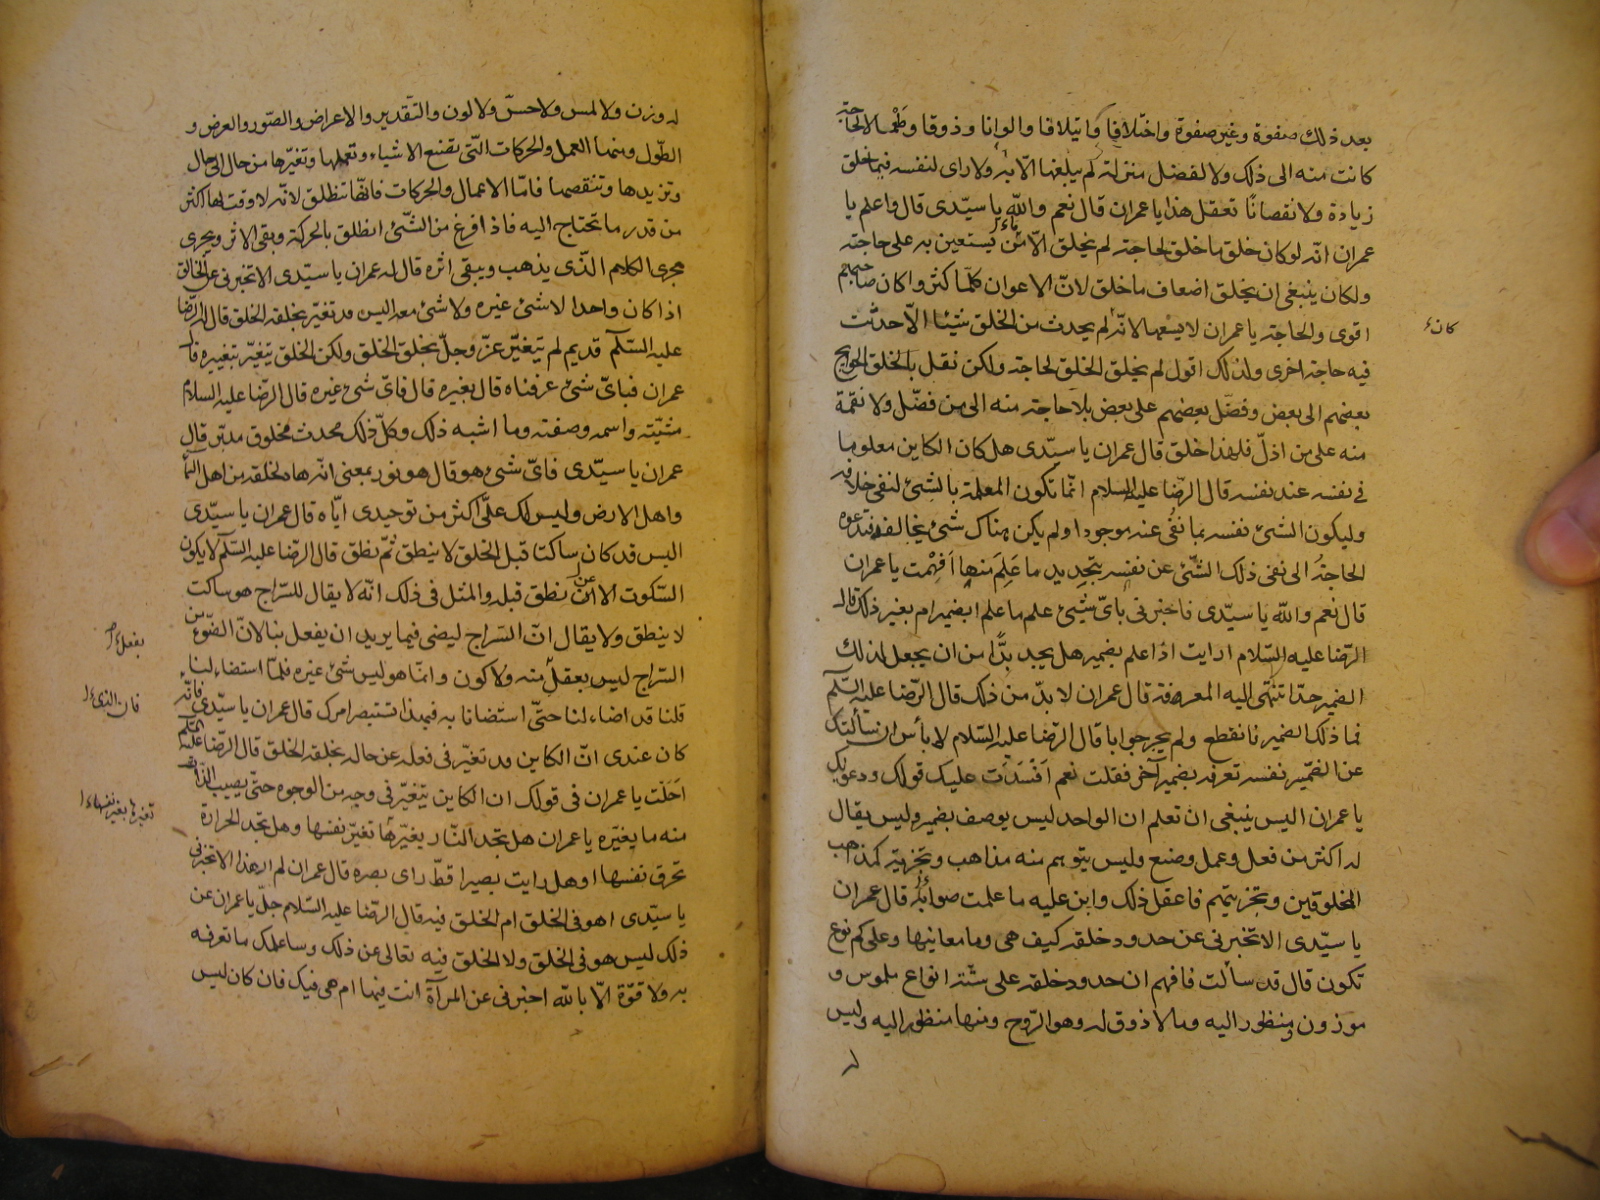 بعد ذلك صفوة وغير صفوة واختلافا وايتلافا والوانا وذوقا وطعما لا لحاجة
كانت منه الى ذلك ولا لفضل منزلة لم يبلغها الا به ولا راى لنفسه فيما خلق
زيادة ولا نقصانا تعقل هذا يا عمران قال نعم والله يا سيدى قال واعلم يا
عمران انه لو كان خلق ما خلق لحاجة لم يخلق الا من يستعين به على حاجته
ولكان ينبغى ان يخلق اضعاف ما خلق لان الاعوان كلما كثروا كان صاحبهم
اقوى والحاجة يا عمران لا يسعها لانه لم يحدث من الخلق شيئا الا حدثت
كان
فيه حاجة اخرى ولذلك اقول لم يخلق الخلق لحاجة ولكن نقل بالخلق الحوايج
بعضهم الى بعض وفضل بعضهم على بعض بلا حاجة منه الى من فضل ولا نقمة
منه على من اذل فلهذا خلق قال عمران يا سيدى هل كان الكاين معلوما
فى نفسه عند نفسه قال الرضا عليه السلام انما تكون المعلمة بالشئ لنفى خلافه
وليكون الشئ نفسه بما نفى عنه موجودا ولم يكن هناك شئ يخالفه فتدعوه
الحاجة الى نفى ذلك الشئ عن نفسه بتجديد ما علم منها افهمت يا عمران
قال نعم والله يا سيدى فاخبرنى باى شئ علم ما علم ابضمير ام بغير ذلك قال
الرضا عليه السلام ارايت اذا علم بضمير هل يجد بدا من ان يجعل لذلك
الضمير حدا تنتهى اليه المعرفة قال عمران لا بد من ذلك قال الرضا عليه السلم
فما ذلك الضمير فانقطع ولم يحر جوابا قال الرضا عليه السلام لا باس ان سألتك
عن الضمير نفسه تعرفه بضمير آخر فقلت نعم افسدت عليك قولك ودعويك
يا عمران اليس ينبغى ان تعلم ان الواحد ليس يوصف بضمير وليس يقال
له اكثر من فعل وعمل وصنع وليس يتوهم منه مذاهب وتجزية كمذاهب
المخلوقين وتجزيتهم فاعقل ذلك وابن عليه ما علمت صوابا قال عمران
يا سيدى الا تخبرنى عن حدود خلقه كيف هى وما معانيها وعلى كم نوع
تكون قال قد سألت فافهم ان حدود خلقه على ستة انواع ملموس و
موزون ومنظور اليه وما لا ذوق له وهو الروح ومنها منظور اليه وليس
له
له وزن ولا لمس ولا حس ولا لون والتقدير والاعراض والصور والعرض و
الطول ومنها العمل والحركات التى تصنع الاشياء وتعملها وتغيرها من حال الى حال
وتزيدها وتنقصها فاما الاعمال والحركات فانها تنطلق لانه لا وقت لها اكثر
من قدر ما تحتاج اليه فاذا فرغ من الشئ انطلق بالحركة وبقى الاثر ويجرى
مجرى الكلام الذى يذهب ويبقى اثره قال له عمران يا سيدى الا تخبرنى عن الخالق
اذا كان واحدا لا شئ غيره ولا شئ معه اليس قد تغير بخلقه الخلق قال له الرضا
عليه السلم قديم لم يتغير عز وجل بخلق الخلق ولكن الخلق يتغير بتغييره قال
عمران فباى شئ عرفناه قال بغيره قال فاى شئ غيره قال الرضا عليه السلام
مشيته واسمه وصفته وما اشبه ذلك وكل ذلك محدث مخلوق مدبر قال
عمران يا سيدى فاى شئ هو قال هو نور بمعنى انه هاد لخلقه من اهل السماء
واهل الارض وليس لك على اكثر من توحيدى اياه قال عمران يا سيدى
اليس قد كان ساكتا قبل الخلق لا ينطق ثم نطق قال الرضا عليه السلم لا يكون
السكوت الا عن نطق قبله والمثل فى ذلك انه لا يقال للسراج هو ساكت
لا ينطق ولا يقال ان السراج ليضى فيما يريد ان يفعل بنا لان الضوء من
السراج ليس بفعل منه ولا كون وانما هو ليس شئ غيره فلما استضاء لنا
قلنا قد اضاء لنا حتى استضانا به فبهذا تستبصر امرك قال عمران يا سيدى فانه
فان الذى
كان عندى ان الكاين قد تغير فى فعله عن حاله بخلقه الخلق قال الرضا عليه السلم
احلت يا عمران فى قولك ان الكاين يتغير فى وجه من الوجوه حتى يصيب الذات
منه ما يغيره يا عمران هل تجد النار يغيرها تغير نفسها وهل تجد الحرارة
تحرق نفسها او هل رايت بصيرا قط راى بصره قال عمران لم ار هذا الا تخبرنى
يا سيدى اهو فى الخلق ام الخلق فيه قال الرضا عليه السلام جل يا عمران عن
ذلك ليس هو فى الخلق ولا الخلق فيه تعالى عن ذلك وساعلمك ما تعرفه
به ولا قوة الا بالله اخبرنى عن المرآة انت فيها ام هى فيك فان كان ليس